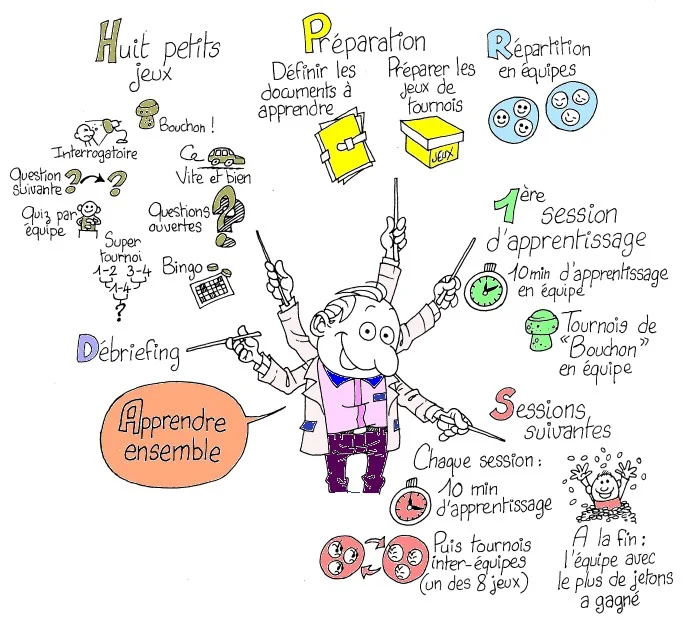 Huit petits
jeux
Bouchon !
Interrogatoire
Ce
Vite et bien
Question
suivante
?
?
Quiz par
équipe
Questions
ouvertes
?
Super
tournoi
1-2 3-4
1-4
?
Bingo
Préparation
Définir les
documents à
apprendre
Préparer les
jeux de
tournois
JEUX
Répartition
en équipes
1ère
session
d'apprentissage
10min d'apprentissage
en équipe
Tournois de
"Bouchon"
en équipe
Sessions
suivantes
Chaque session :
10 min
d'apprentissage
Puis tournois
inter-équipes
(un des 8 jeux)
A la fin :
l'équipe avec
le plus de jetons
a gagné
Débriefing
Apprendre
ensemble